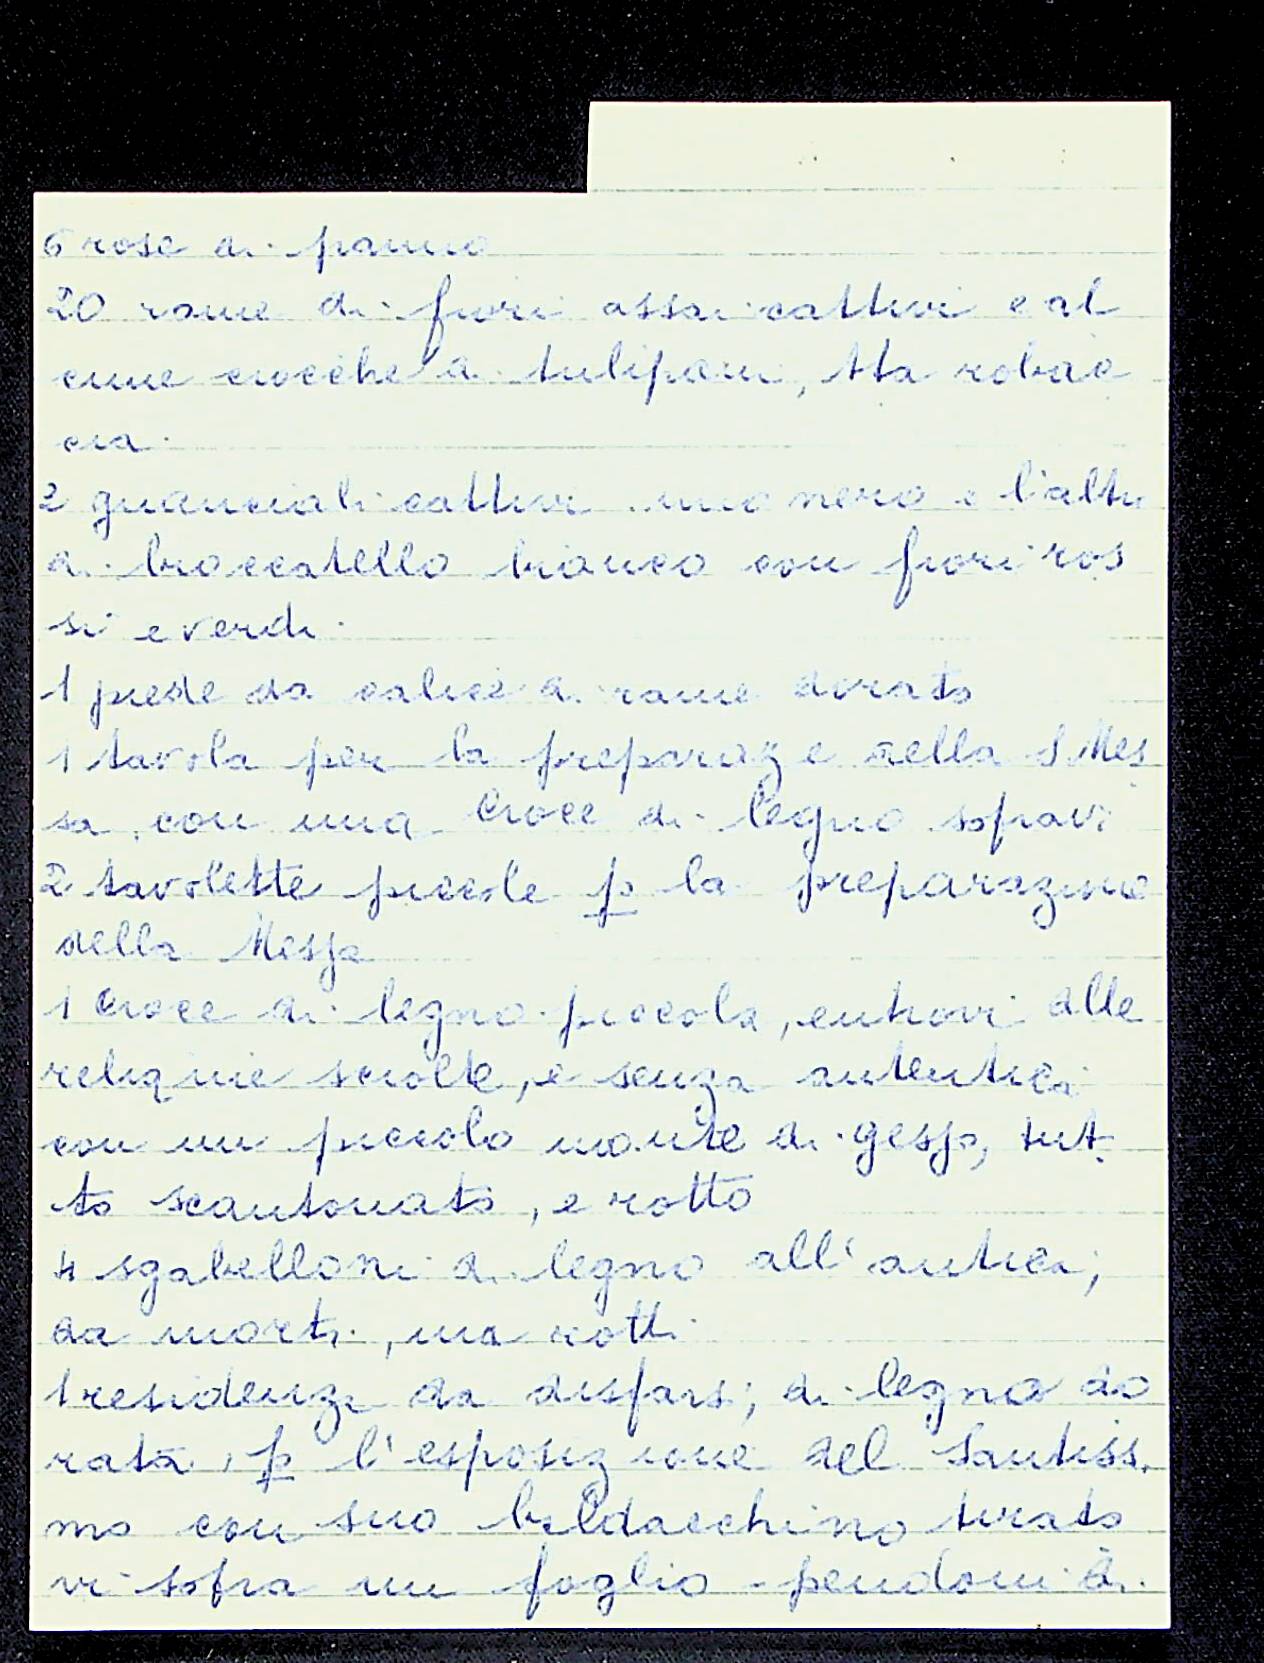 6 rose di panno
20 rame di fiori assai cattivi e al
cune crocche di tulipani, tta robac
cia.
2 guanciali cattivi uno nero e l'altro
di broccatello bianco con fiori ros
si e verdi.
1 piede da calice di rame dorato
1 tavola per la preparaz e della S Mes
sa, con una Croce di legno sopravi
2 tavolette piccole p la preparazione
della Messa
1 Croce di legno piccola, entrovi alle
reliquie sciolte, e senza autentica
con un piccolo monte di gesso, tut
to scantonato, e rotto
4 sgabelloni di legno all'antica;
da morti, ma rotti.
1 residenza da disfarsi; di legno do
rata, p l'esposizione del Santiss.
mo con suo baldacchino tirato
vi sopra un foglio pendoni di